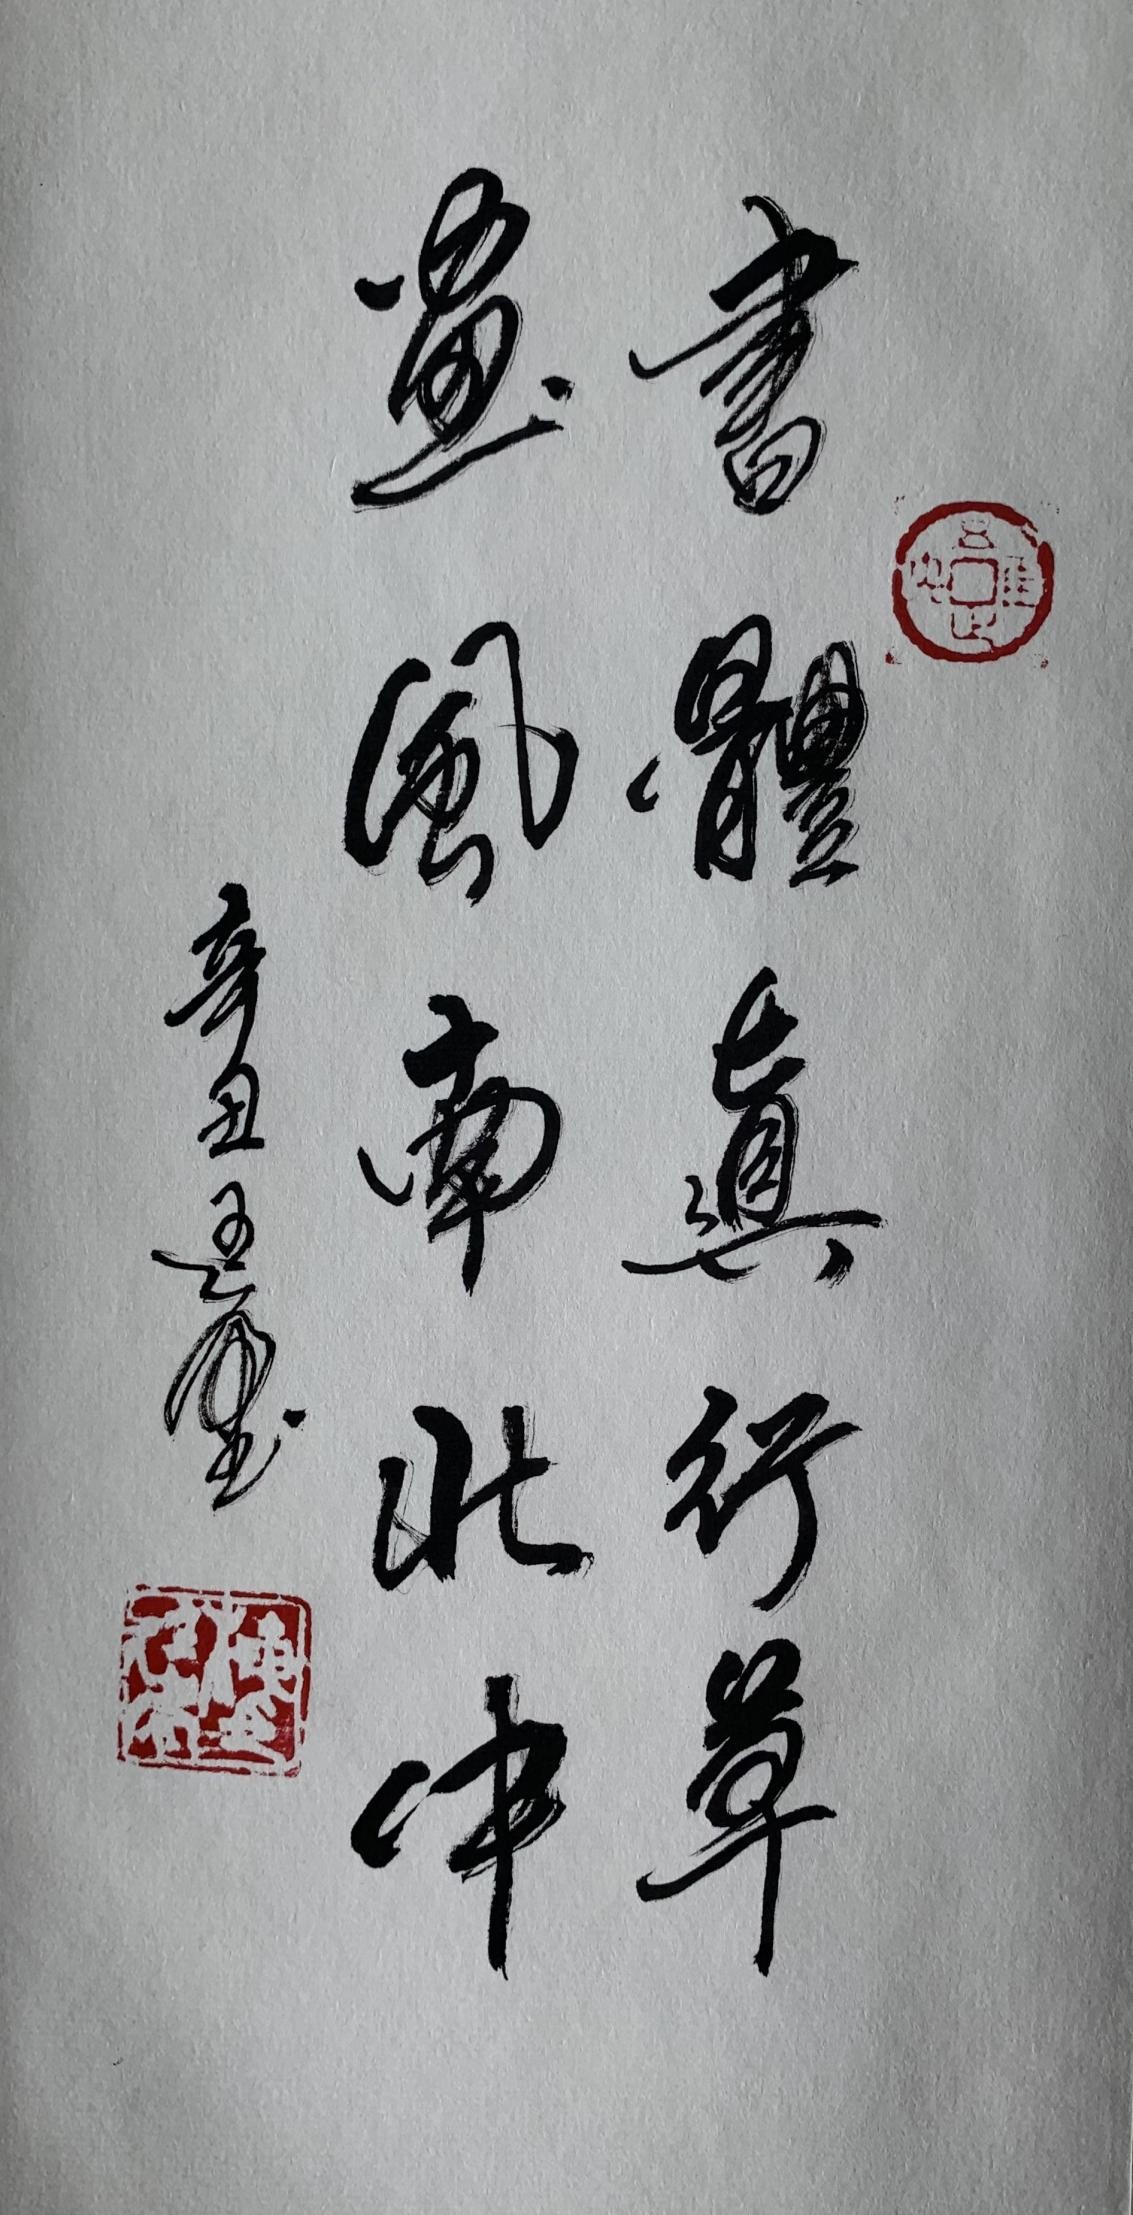 書體真行草
畫風南北中
辛丑